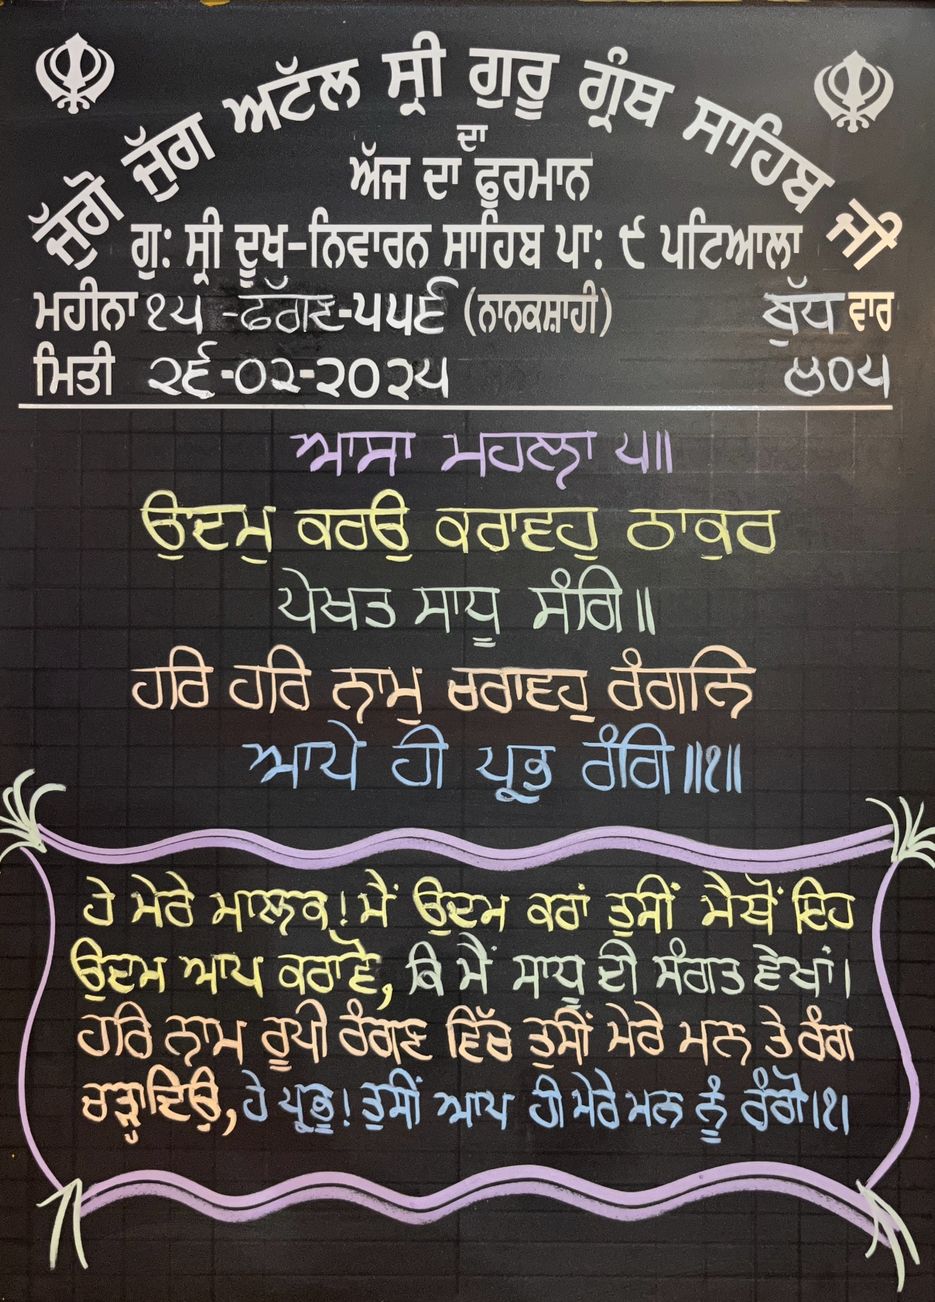 ਜੁੱਗੋ ਜੁੱਗ ਅਟੱਲ ਸ੍ਰੀ ਗੁਰੂ ਗ੍ਰੰਥ ਸਾਹਿਬ ਜੀ
ਦਾ
ਅੱਜ ਦਾ ਫੁਰਮਾਨ
ਗੁ: ਸ੍ਰੀ ਦੂਖ-ਨਿਵਾਰਨ ਸਾਹਿਬ ਪਾ: ੯ ਪਟਿਆਲਾ
ਮਹੀਨਾ ੧੫ -ਫੱਗਣ-੫੫੬ (ਨਾਨਕਸ਼ਾਹੀ) ਬੁੱਧ ਵਾਰ
ਮਿਤੀ ੨੬-੦੨-੨੦੨੫ ੪੦੫
ਆਸਾ ਮਹਲਾ ੫॥
ਉਦਮੁ ਕਰਉ ਕਰਾਵਹੁ ਠਾਕੁਰ
ਪੇਖਤ ਸਾਧੂ ਸੰਗਿ॥
ਹਰਿ ਹਰਿ ਨਾਮੁ ਚਰਾਵਹੁ ਰੰਗਨਿ
ਆਪੇ ਹੀ ਪ੍ਰਭ ਰੰਗਿ॥੧॥
ਹੇ ਮੇਰੇ ਮਾਲਕ! ਮੈਂ ਉਦਮ ਕਰਾਂ ਤੁਸੀਂ ਮੈਥੋਂ ਇਹ
ਉਦਮ ਆਪ ਕਰਾਵੋ, ਕਿ ਮੈਂ ਸਾਧੂ ਦੀ ਸੰਗਤ ਵੇਖਾਂ।
ਹਰਿ ਨਾਮ ਰੂਪੀ ਰੰਗਣ ਵਿੱਚ ਤੁਸੀਂ ਮੇਰੇ ਮਨ ਤੇ ਰੰਗ
ਚੜ੍ਹਾਦਿਉ, ਹੇ ਪ੍ਰਭੂ! ਤੁਸੀਂ ਆਪ ਹੀ ਮੇਰੇ ਮਨ ਨੂੰ ਰੰਗੋ।੧।